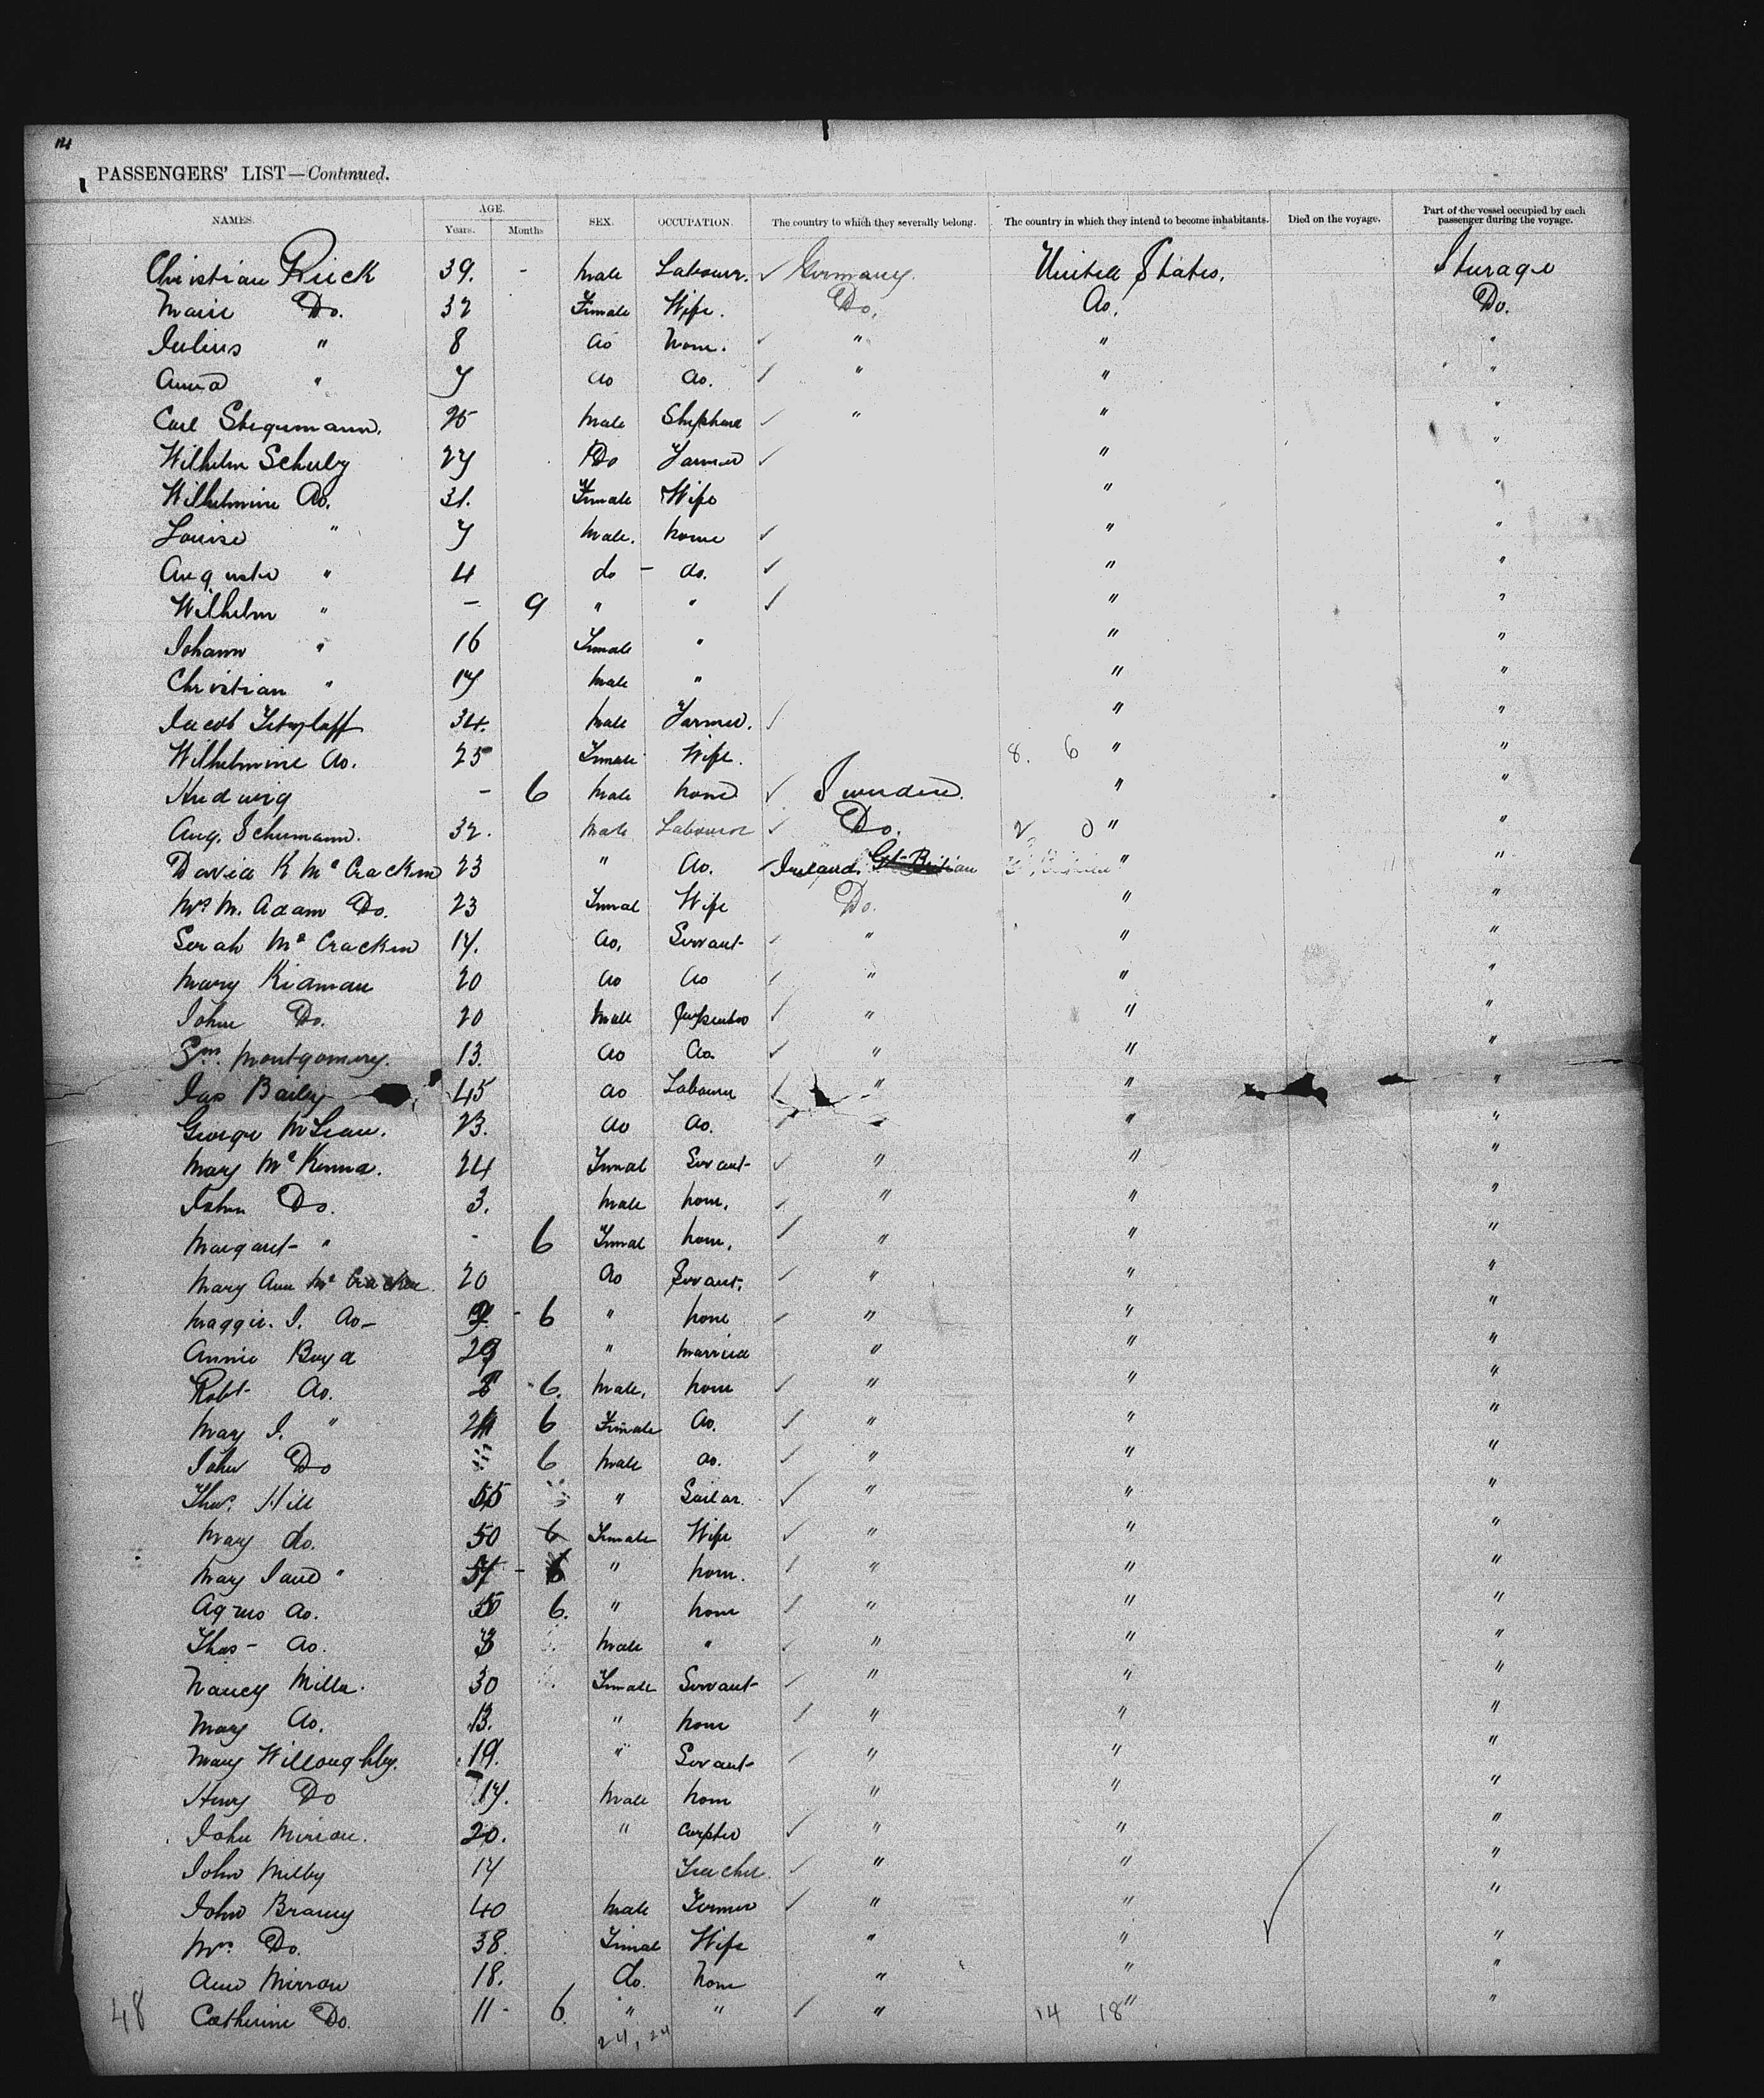 PASSENGERS' LIST—Continued.
NAMES. AGE. Years. Months SEX. OCCUPATION. The country to which they severally belong. The country in which they intend to become inhabitants. Died on the voyage. Part of the vessel occupied by each passenger during the voyage.
Christian Rieck 39. - Male Labourer. ✓ Germany. United States. Sturage
Marie Do. 32 Female Wife. Do. Do. Do.
Julius " 8 do None. ✓ " " "
Anna " 7 do do. ✓ " " "
Carl Stegumann. 25 Male ✓ " " "
Wilhelm Schulz 27 Do Farmer ✓ " "
Wilhelmine do. 31. Female Wife " "
Louise " 7 Male. none ✓ " "
Auguste " 4 do - do. ✓ " "
Wilhelm " - 9 " " ✓ " "
Johann " 16 Female " " "
Christian " 17 Male " " "
Jacob 34. Male Farmer. ✓ " "
Wilhelmine do. 25 Female Wife. 8. 6 " "
Hedwig - 6 Male none ✓ Sweden. " "
Aug. Schumann. 32. Male Labourer ✓ Do. 2 0 " "
David K McCracken 23 " do. Ireland. Gt Britian " "
Mrs M. Adam Do. 23 Femal Wife Do. " "
Serah McCracken 17. do, Servant ✓ " " "
Mary Kidman 20 do do ✓ " " "
John Do. 20 Male ✓ " " "
Montgomery. 13. do do ✓ " " "
Jas Bailey 45 do Labourer ✓ " " "
George McLean. 23. do do. ✓ " " "
Mary McKenna. 24 Femal Servant ✓ " " "
John Do. 3. Male none. ✓ " " "
Margaret " - 6 Femal none. ✓ " " "
Mary Ann McCracken 20 do Servant. ✓ " " "
Maggie. J. do - 6 " none ✓ " " "
Annie Boyd 29 " Married " " "
Robt do. 6. Male. none ✓ " " "
Mary J. " 6 Female do. ✓ " " "
John Do 6 Male do. ✓ " " "
Thos. Hill 55 " Sailor. ✓ " " "
Mary do. 50 6 Female Wife ✓ " " "
Mary Jane " - 6 " none. ✓ " " "
Agnes do. 6. " none ✓ " " "
Thos - do. 3 Male " ✓ " " "
Nancy Miller. 30 Female Servant ✓ " " "
Mary do. 13. " none ✓ " " "
Mary Willoughby. 19. " Servant ✓ " " "
Henry Do 17. Male none " " "
John Mirion. 20. " carpter ✓ " " "
John Milby 17 Teacher ✓ " " "
John Bramy 40 Male Farmer ✓ " " "
Mrs. Do. 38. Femal Wife " " "
Ann Mirrow 18. do. none " " "
48 Catherine Do. 11 - 6. " " ✓ " 14 18 " "
24, 24